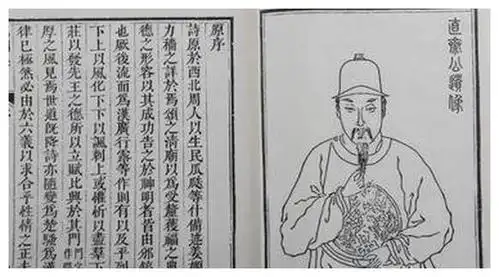 直齋公遺像
原序
詩原於西北周人以生民瓜瓞等什備述姜嫄
力穡之詳於為頌之清廟以為受釐獲福之典
德之形容以其成功告之於神明者皆由郊
也厥後流而為漢廣行露等作則有以及乎
下上以風化下下以諷刺上或析以盡羣下
莊以發先王之德所以立賦比興於其門
厚之風見為世道既降詩亦隨變為楚騷為漢
律已極然必由於六義以求合乎性情之正